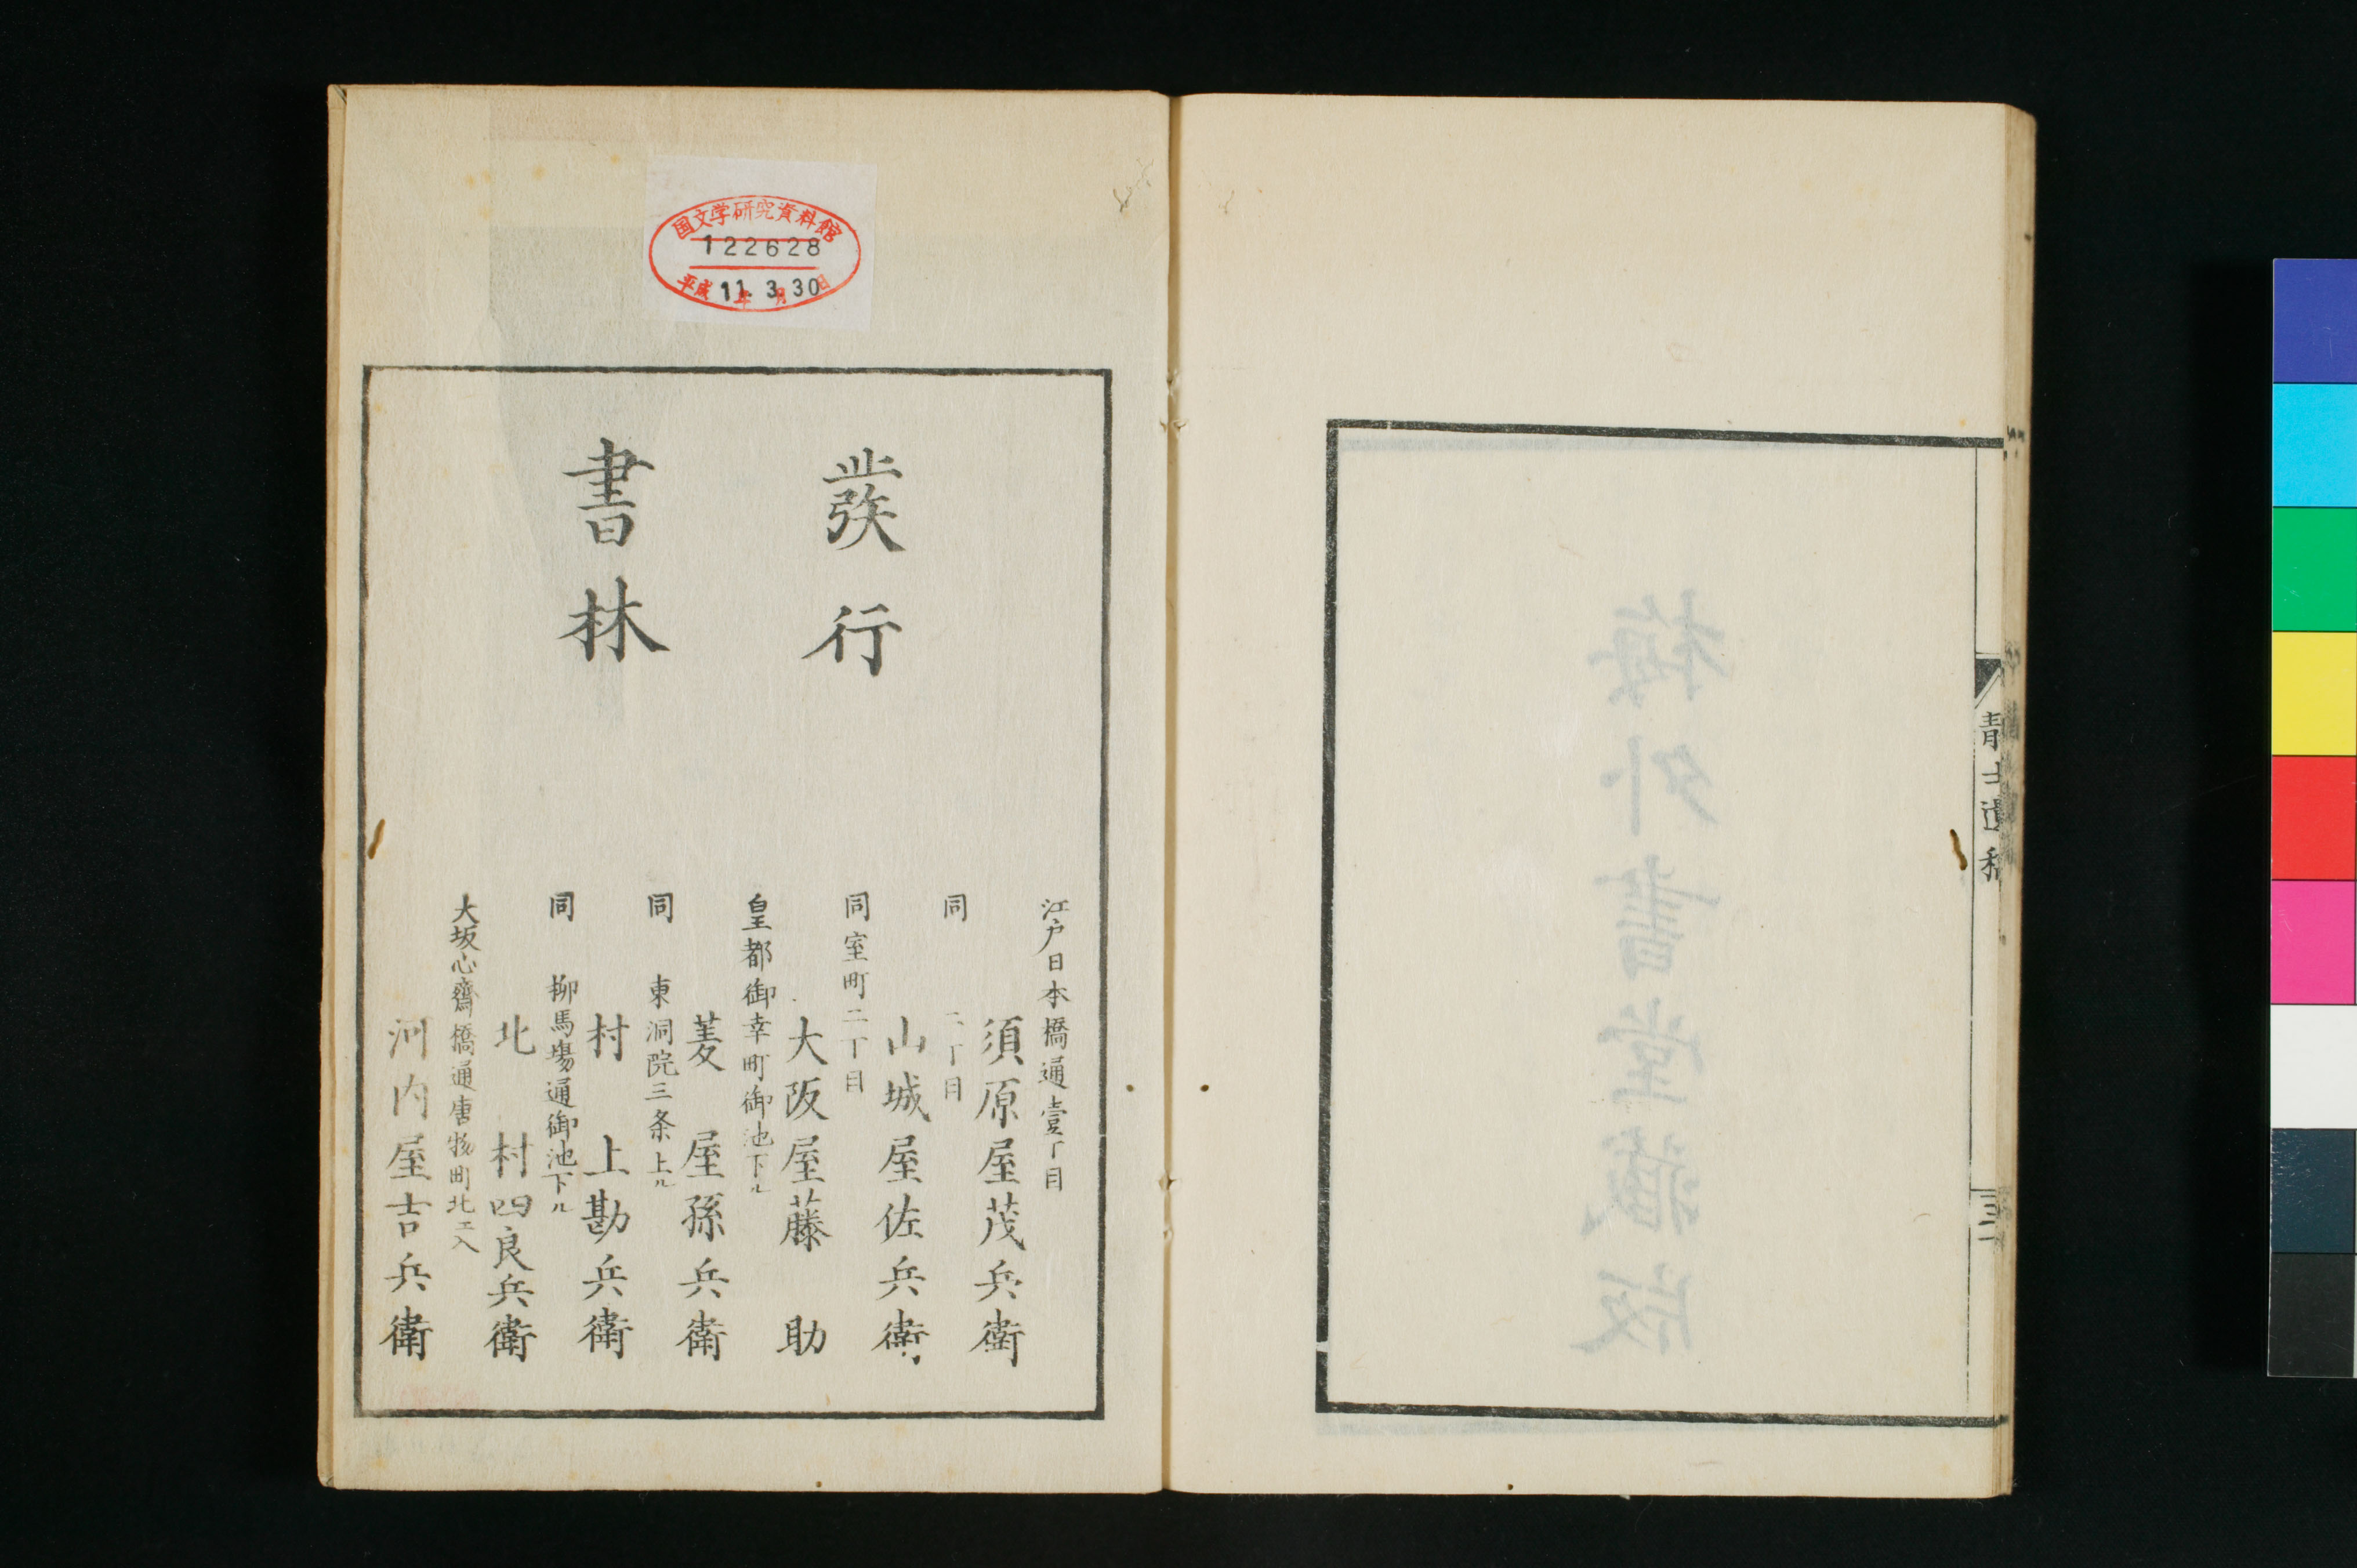 青士遺稿
三
梅外書堂藏版
国文学研究資料館
122628
平成11年3月30日
發行
書林
江戸日本橋通壹丁目
須原屋茂兵衛
同 二丁目
山城屋佐兵衛
同室町二丁目
大阪屋藤助
皇都御幸町御池下ル
菱屋孫兵衛
同 東洞院三条上ル
村上勘兵衛
同 柳馬場通御池下ル
北村四良兵衛
大坂心齋橋通唐物町北エ入
河内屋吉兵衛